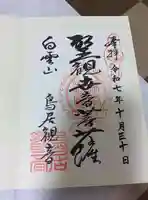 奉拝 令和七年十月三十日
聖観世音菩薩
白雲山 鳥居観音